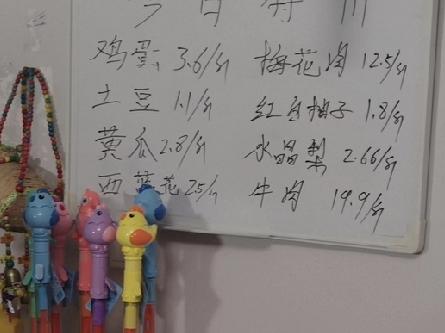 鸡蛋 3.6/斤 梅花肉 12.5/斤
土豆 1.1/斤 红白柚子 1.8/斤
黄瓜 2.8/斤 水晶梨 2.66/斤
西兰花 25/斤 牛肉 19.9/斤